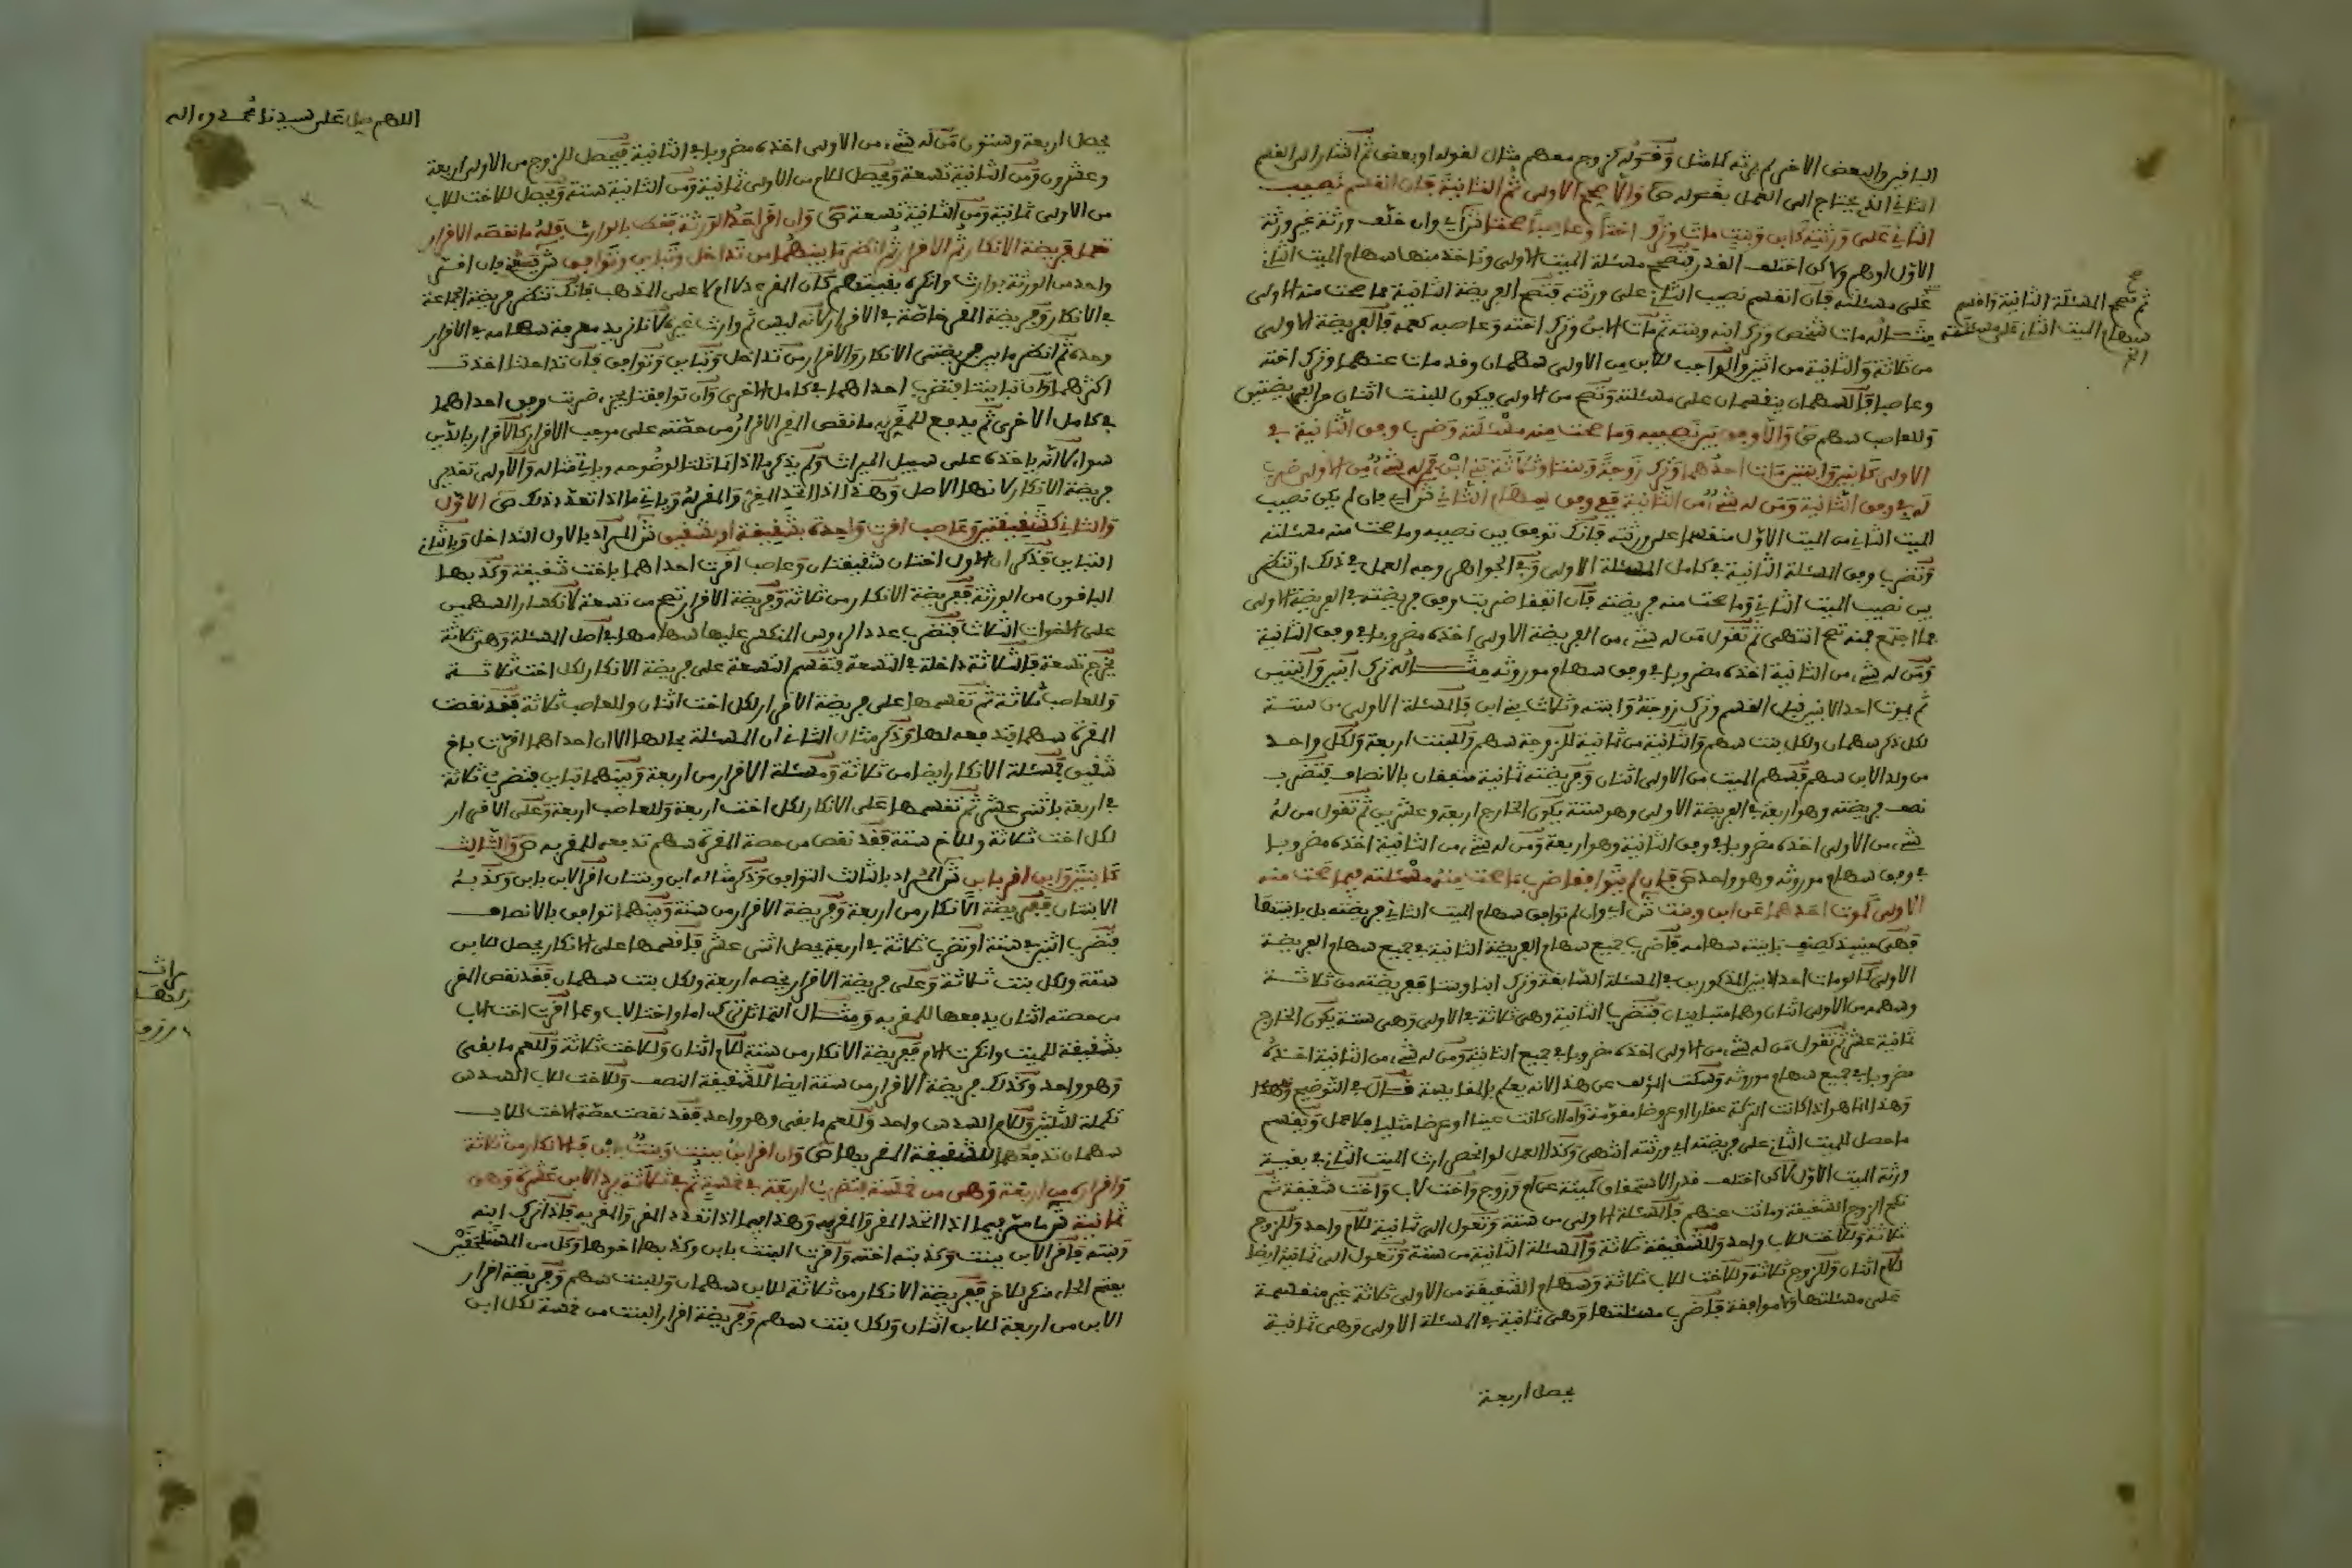 الباقين والبعض الاخر لم يرثه كامثل وقوله كزوج معهم مثال لقوله او بعض ثم اشار الى القسم
الثاني الذي يحتاج الى العمل بقوله ص والا صحح الاولى ثم الثانية فان انقسم نصيب
الثاني على ورثته كابن وبنت مات وترك اختا وعاصبا صحتا ش اي وان خلف ورثة غير ورثة
الاول او هم ولاكن اختلف القدر فتصحح مسئلة الميت الاولى وتاخذ منها سهام الميت الثاني
على مسئلته فان انقسم نصيب الثاني على ورثته فتصح الفريضة الثانية مما صحت منه الاولى
مثاله مات شخص وترك ابنه وبنته ثم مات الابن وترك اخته وعاصبه كعمه فالفريضة الاولى
من ثلاثة والثانية من اثنين والواجب للابن من الاولى سهمان وقد مات عنهما وترك اخته
وعاصبا فالسهمان ينقسمان على مسئلته وتصح من الاولى فيكون للبنت اثنان من الفريضتين
وللعاصب سهم ص والا وفق بين نصيبه وما صحت منه مسئلته وضرب وفق الثانية في
الاولى كابنين وابنتين مات احدهما وترك زوجة وبنتا وثلاثة بني ابن فمن له شيء من الاولى ضرب
له في وفق الثانية ومن له شيء من الثانية ففي وفق سهام الثاني ش اي فان لم يكن نصيب
الميت الثاني من الميت الاول منقسما على ورثته فانك توفق بين نصيبه وما صحت منه مسئلته
وتضرب وفق المسئلة الثانية في كامل المسئلة الاولى وفي الجواهر وجه العمل في ذلك ان تنظر
بين نصيب الميت الثاني وما صحت منه فريضته فان اتفقا ضربت وفق فريضته في الفريضة الاولى
فما اجتمع فمنه تصح انتهى ثم تقول من له شيء من الفريضة الاولى اخذه مضروبا في وفق الثانية
ومن له شيء من الثانية اخذه مضروبا في وفق سهام موروثه مثاله ترك ابنين وابنتين
ثم يموت احد الابنين قبل القسم وترك زوجة وابنته وثلاث بني ابن فالمسئلة الاولى من ستة
لكل ذكر سهمان ولكل بنت سهم والثانية من ثمانية للزوجة سهم وللبنت اربعة ولكل واحد
من ولد الابن سهم فسهم الميت من الاولى اثنان وفريضته ثمانية متفقان بالانصاف فتضرب
نصف فريضته وهو اربعة في الفريضة الاولى وهو ستة يكون الخارج اربعة وعشرين ثم تقول من له
شيء من الاولى اخذه مضروبا في وفق الثانية وهو اربعة ومن له شيء من الثانية اخذه مضروبا
في وفق سهام موروثه وهو واحد ص فان لم يتوافقا ضرب ما صحت منه مسئلته فيما صحت منه
الاولى كموت احدهما عن ابن وبنت ش اي وان لم توافق سهام الميت الثاني فريضته بل باينتها
فاضرب جميع سهام الفريضة الثانية في جميع سهام الفريضة
الاولى كما لو مات احد الابنين المذكورين في المسئلة السابقة وترك ابنا وبنتا ففريضته من ثلاثة
وسهمه من الاولى اثنان وهما متباينان فتضرب الثانية وهي ثلاثة في الاولى وهي ستة يكون الخارج
ثمانية عشر ثم تقول من له شيء من الاولى اخذه مضروبا في جميع الثانية ومن له شيء من الثانية اخذه
مضروبا في جميع سهام موروثه وسكت المؤلف عن هذا لانه يعلم بالمقايسة قال في التوضيح وهذا
وهذا انما هو اذا كانت التركة عقارا او عروضا مقومة واما ان كانت عينا او عرضا مثليا فلا عمل ويقسم
ما حصل للميت الثاني على فريضته اي ورثته انتهى وكذا العمل لو انحصر ارث الميت الثاني في بقية
ورثة الميت الاول لاكن اختلف قدر الاستحقاق كميتة عن ام وزوج واخت لاب واخت شقيقة ثم
نكح الزوج الشقيقة وماتت عنهم فالمسئلة الاولى من ستة وتعول الى ثمانية للام واحد وللزوج
ثلاثة وللاخت للاب واحد وللشقيقة ثلاثة والمسئلة الثانية من ستة وتعول الى ثمانية ايضا
للام اثنان وللزوج ثلاثة وللاخت للاب ثلاثة وسهام الشقيقة من الاولى ثلاثة غير منقسمة
على مسئلتها ولا موافقة فاضرب مسئلتها وهي ثمانية في المسئلة الاولى وهي ثمانية
يحصل اربعة
ثم تصح المسئلة الثانية واقسم
سهام الميت الثاني على مسئلته
الخ
اللهم صل على سيدنا محمد وءاله
يحصل اربعة وستون من له شيء من الاولى اخذه مضروبا في الثانية فيحصل للزوج من الاولى اربعة
وعشرون ومن الثانية تسعة ويحصل للام من الاولى ثمانية ومن الثانية ستة ويحصل للاخت للاب
من الاولى ثمانية ومن الثانية تسعة ص وان اقر احد الورثة فقط بوارث فله ما نقصه الاقرار
تعمل فريضة الانكار ثم الاقرار ثم انظر ما بينهما من تداخل وتباين وتوافق ش يعني فان اقر
واحد من الورثة بوارث وانكره بقيتهم كان المقر عدلا ام لا على المذهب فانك تنظر فريضة الجماعة
في الانكار وفريضة المقر خاصة في الاقرار كانه ليس ثم وارث غيره لانا نريد معرفة سهامه في الاقرار
وحده ثم انظر ما بين فريضتي الانكار والاقرار من تداخل وتباين وتوافق فان تداخلتا اخذت
اكثرهما وان تباينتا فتضرب احداهما في كامل الاخرى وان توافقتا بجزء ضربت وفق احداهما
في كامل الاخرى ثم يدفع للمقر به ما نقص المقر الاقرار من حصته على موجب الاقرار كالاقرار بالدين
سواء لا انه ياخذه على سبيل الميراث ولم يذكر ما اذا تماثلتا لوضوحه وياتي مثاله والاولى تقديم
فريضة الانكار لانها الاصل وهذا اذا اتحد المقر والمقر له وياتي ما اذا تعدد ذلك ص الاول
والثاني كشقيقتين وعاصب اقرت واحدة بشقيقة او بشقيق ش المراد بالاول التداخل وبالثاني
التباين فذكر ان الاول اختان شقيقتان وعاصب اقرت احداهما باخت شقيقة وكذبها
الباقون من الورثة ففريضة الانكار من ثلاثة وفريضة الاقرار تصح من تسعة لانكسار السهمين
على الاخوات الثلاث فتضرب عدد الرءوس المنكسر عليها سهامها في اصل المسئلة وهي ثلاثة
يخرج تسعة فالثلاثة داخلة في التسعة فتقسم التسعة على فريضة الانكار لكل اخت ثلاثة
وللعاصب ثلاثة ثم تقسمها على فريضة الاقرار لكل اخت اثنان وللعاصب ثلاثة فقد نقصت
المقرة سهما فتدفعه لها وذكر مثال الثاني ان المسئلة بحالها الا ان احداهما اقرت باخ
شقيق فمسئلة الانكار ايضا من ثلاثة ومسئلة الاقرار من اربعة وبينهما تباين فتضرب ثلاثة
في اربعة باثني عشر ثم تقسمها على الانكار لكل اخت اربعة وللعاصب اربعة وعلى الاقرار
لكل اخت ثلاثة وللاخ ستة فقد نقص من حصة المقرة سهم تدفعه للمقر به ص والثالث
كابنتين وابن اقر بابن ش المراد بالثالث التوافق وذكر مثاله ابن وبنتان اقر الابن بابن وكذبه
الابنتان ففريضة الانكار من اربعة وفريضة الاقرار من ستة وبينهما توافق بالانصاف
فتضرب اثنين في ستة او تضرب ثلاثة في اربعة يحصل اثنى عشر فاقسمها على الانكار يحصل للابن
ستة ولكل بنت ثلاثة وعلى فريضة الاقرار يخصه اربعة ولكل بنت سهمان فقد نقص المقر
من حصته اثنان يدفعها للمقر به ومثال التماثل ترك اما واختا لاب وعما اقرت اخت الاب
بشقيقة للميت وانكرت الام ففريضة الانكار من ستة للام اثنان وللاخت ثلاثة وللعم ما بقي
وهو واحد وكذلك فريضة الاقرار من ستة ايضا للشقيقة النصف وللاخت للاب السدس
تكملة الثلثين وللام السدس واحد وللعم ما بقي وهو واحد فقد نقصت حصة الاخت للاب
سهمان تدفعهما للشقيقة المقر بها ص وان اقر ابن ببنت وبنت بابن فالانكار من ثلاثة
واقراره من اربعة وهي من خمسة فتضرب اربعة في خمسة ثم في ثلاثة يرد الابن عشرة وهي
ثمانية ش ما مر فيما اذا اتحد المقر والمقر به وهذا فيما اذا تعدد المقر والمقر به فاذا ترك ابنه
وبنته فاقر الابن ببنت وكذبته اخته واقرت البنت بابن وكذبها اخوها وكل من
منكر للاخر ففريضة الانكار من ثلاثة للابن سهمان وللبنت سهم وفريضة اقرار
الابن من اربعة للابن اثنان ولكل بنت سهم وفريضة اقرار البنت من خمسة لكل ابن